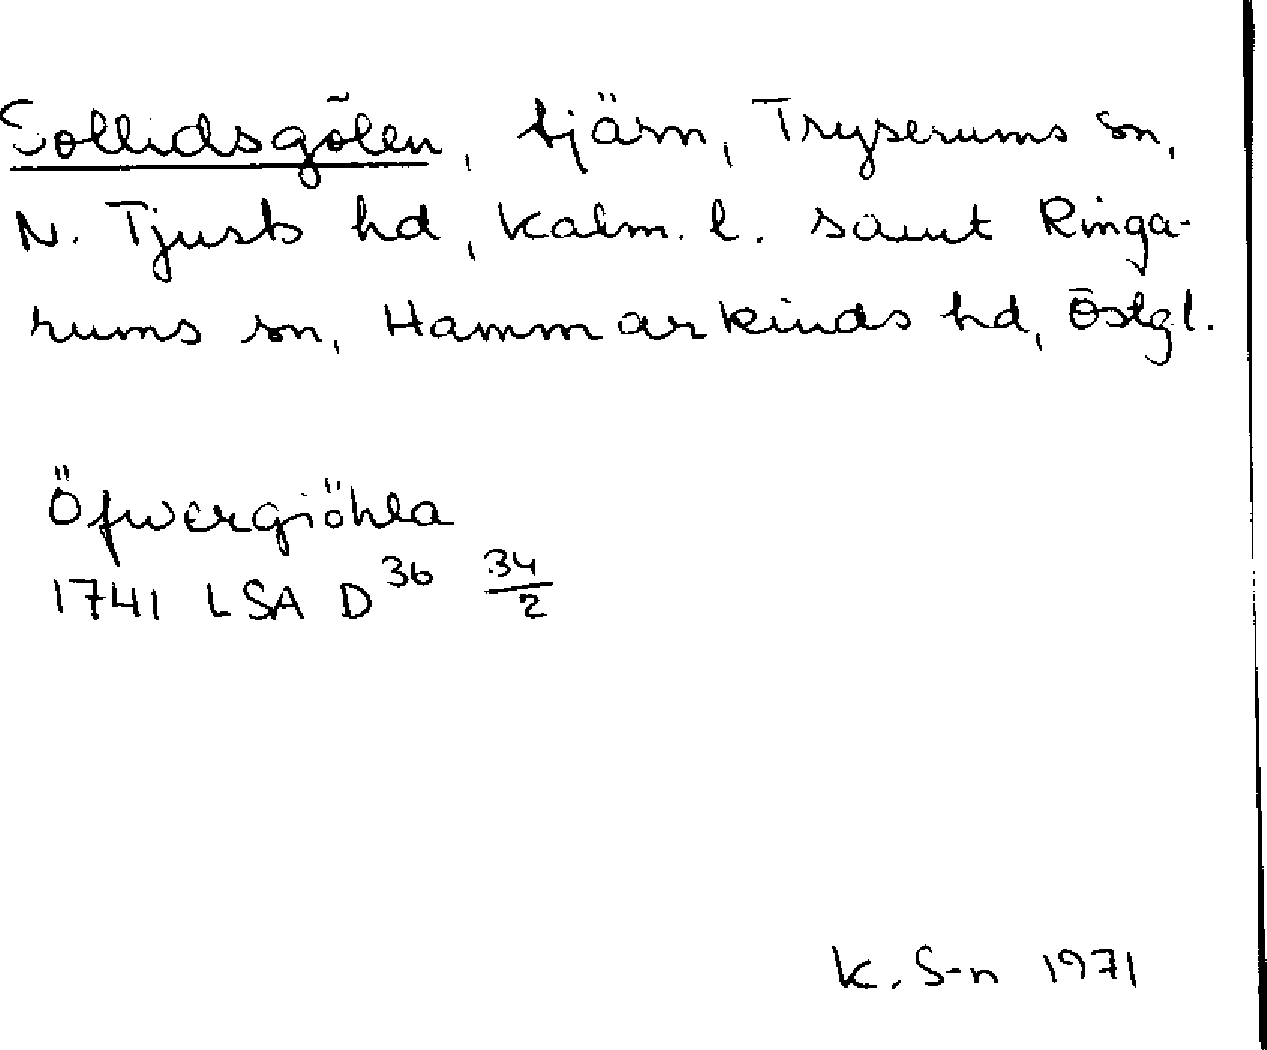 Sollidsgölen, tjärn, Tryserums sn,
N. Tjusts hd, Kalm. l. samt Ringa-
rums sn, Hammarkinds hd, Östgl.
Öfwergiöhla
1741 LSA D 36 34/2
K. S-n 1971